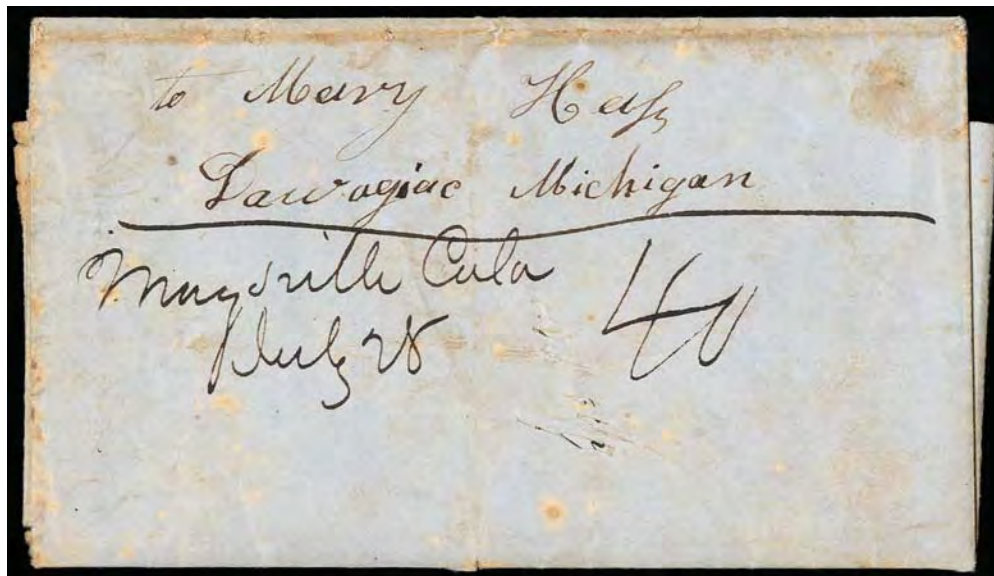 to Mary
Dawogiac Michigan
Marysville Cala 40
July 28